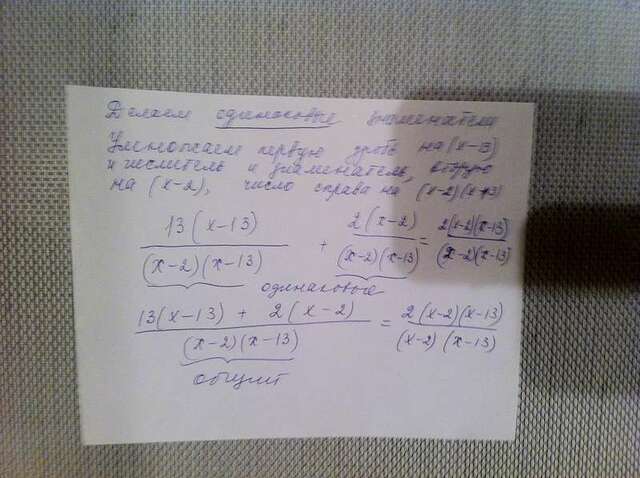 Делаем одинаковые знаменатели
Умножаем первую дробь на (x-13)
и числитель и знаменатель, вторую
на (x-2), число справа на (x-2)(x-13)
13(x-13)/(x-2)(x-13) + 2(x-2)/(x-2)(x-13) = 2(x-2)(x-13)/(x-2)(x-13)
одинаковые
13(x-13) + 2(x-2)/(x-2)(x-13) = 2(x-2)(x-13)/(x-2)(x-13)
общий